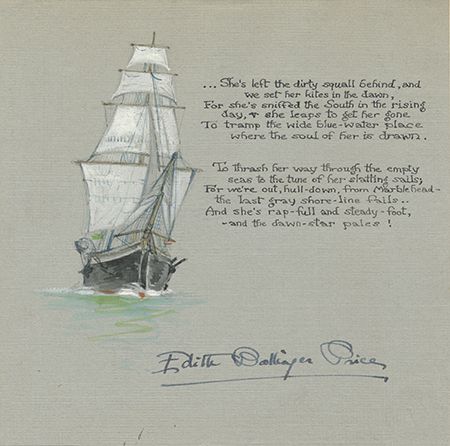 ... She's left the dirty squall behind, and
we set her kites in the dawn,
For she's sniffed the South in the rising
day, & she leaps to get her gone
To tramp the wide blue-water place
where the soul of her is drawn.
To thrash her way through the empty
seas to the tune of her slatting sails;
For we're out, hull-down, from Marblehead-
the last gray shore-line fails..
And she's rap-full and steady-foot,
-and the dawn-star pales !
Edith Ballinger Price